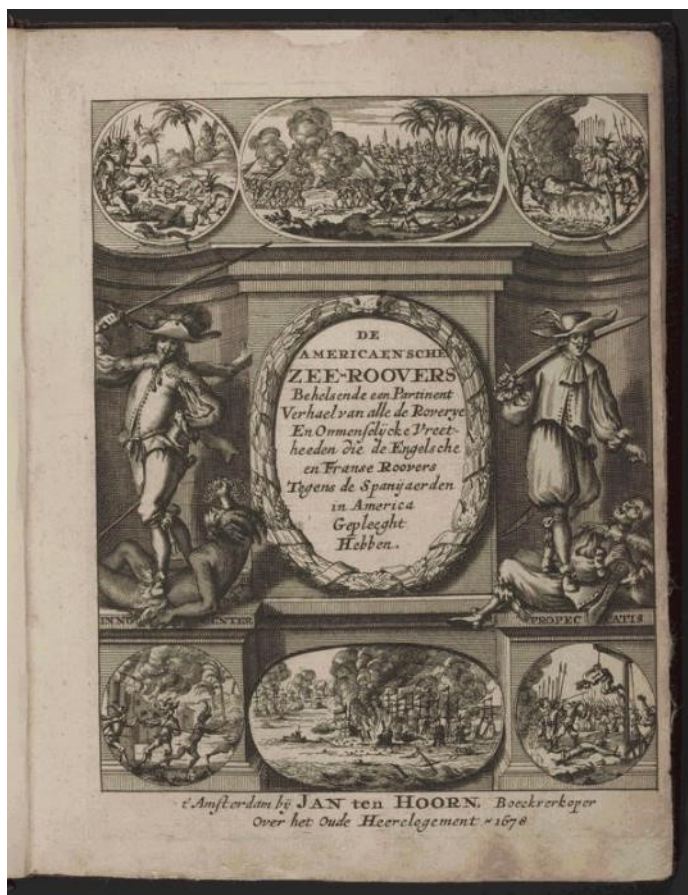 DE
AMERICAENSCHE
ZEE-ROOVERS
Behelsende een Partinent
Verhael van alle de Roverye
En Onmenselijcke Vreet-
heeden die de Engelsche
en Franse Roovers
Tegens de Spanjaerden
in America
Gepleeght
Hebben.
INNO ENTER
PROPEC ATIS
t'Amsterdam bij JAN ten HOORN, Boeckverkoper
Over het Oude Heerelogement 1678